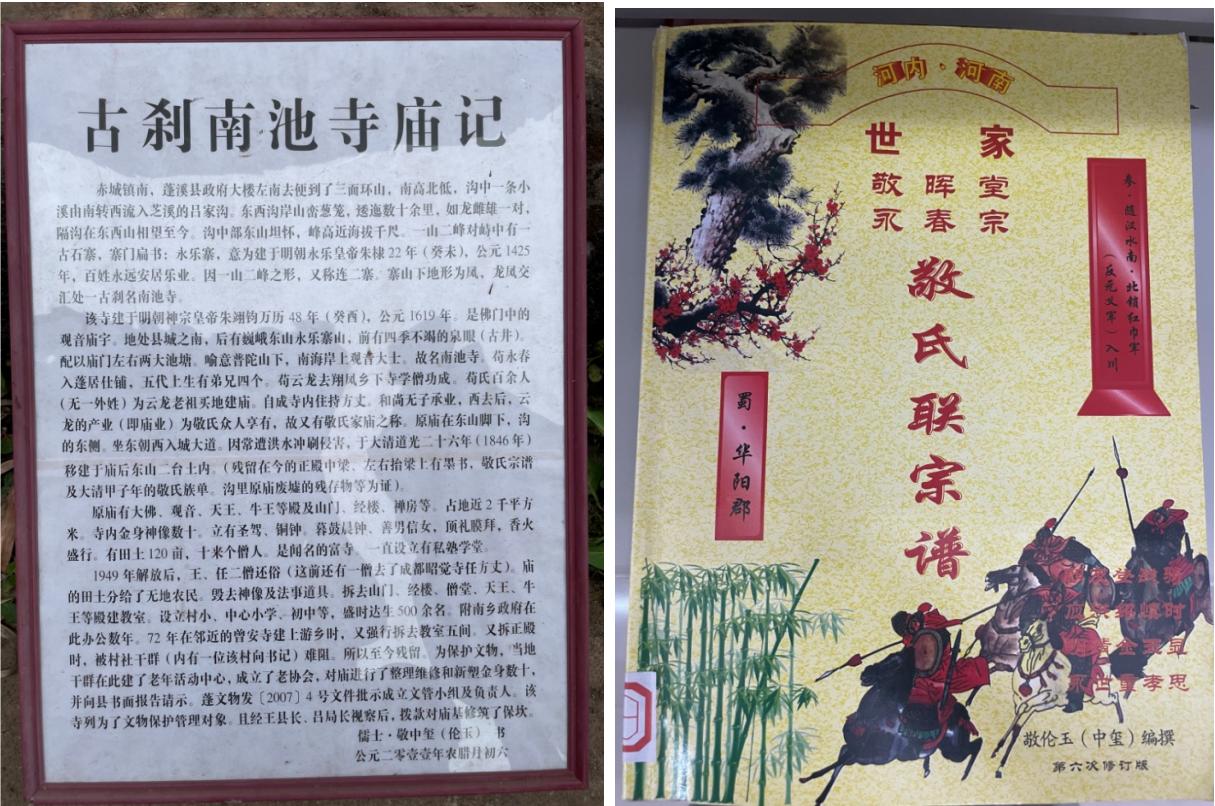 古刹南池寺庙记
赤城镇南，蓬溪县政府大楼左南去便到了三面环山，南高北低，沟中一条小
溪由南转西流入芝溪的吕家沟。东西沟岸山峦葱笼，逶迤数十余里，如龙雌雄一对，
隔沟在东西山相望至今。沟中部东山坦怀，峰高近海拔千尺。一山二峰对峙中有一
古石寨，寨门扁书：永乐寨，意为建于明朝永乐皇帝朱棣22年（癸未），公元1425
年，百姓永远安居乐业。因一山二峰之形，又称连二寨。寨山下地形为凤，龙凤交
汇处一古刹名南池寺。
该寺建于明朝神宗皇帝朱翊钧万历48年（癸酉），公元1619年。是佛门中的
观音庙宇。地处县城之南，后有巍峨东山永乐寨山，前有四季不竭的泉眼（古井）。
配以庙门左右两大池塘。喻意普陀山下，南海岸上观音大士。故名南池寺。苟永春
入蓬居仕铺，五代上生有弟兄四个。苟云龙去翔凤乡下寺学僧功成。苟氏百余人
（无一外姓）为云龙老祖买地建庙。自成寺内住持方丈。和尚无子承业，西去后，云
龙的产业（即庙业）为敬氏众人享有，故又有敬氏家庙之称。原庙在东山脚下，沟
的东侧。坐东朝西入城大道。因常遭洪水冲刷侵害，于大清道光二十六年（1846年）
移建于庙后东山二台土内。（残留在今的正殿中梁、左右抬梁上有墨书，敬氏宗谱
及大清甲子年的敬氏族单。沟里原庙废墟的残存物等为证）。
原庙有大佛、观音、天王、牛王等殿及山门、经楼、禅房等。占地近2千平方
米。寺内金身神像数十。立有圣驾、铜钟。暮鼓晨钟、善男信女，顶礼膜拜，香火
盛行。有田土120亩，十来个僧人。是闻名的富寺。一直设立有私塾学堂。
1949年解放后，王、任二僧还俗（这前还有一僧去了成都昭觉寺任方丈）。庙
的田土分给了无地农民。毁去神像及法事道具。拆去山门、经楼、僧堂、天王、牛
王等殿建教室。设立村小、中心小学、初中等，盛时达生500余名。附南乡政府在
此办公数年。72年在邻近的曾安寺建上游乡时，又强行拆去教室五间。又拆正殿
时，被村社干群（内有一位该村向书记）难阻。所以至今残留。为保护文物，当地
干群在此建了老年活动中心，成立了老协会，对庙进行了整理维修和新塑金身数十，
并向县书面报告请示。蓬文物发〔2007〕4号文件批示成立文管小组及负责人。该
寺列为了文物保护管理对象。且经王县长、吕局长视察后，拨款对庙基修筑了保坎。
儒士·敬中玺（伦玉） 书
公元二零壹壹年农腊月初六
河内·河南
世 家
敬 晖 堂
永 春 宗
敬氏联宗谱
参·随汉水南·北锁红巾军
（反元义军）入川
蜀·华阳郡
敬伦玉（中玺）编撰
第六次修订版